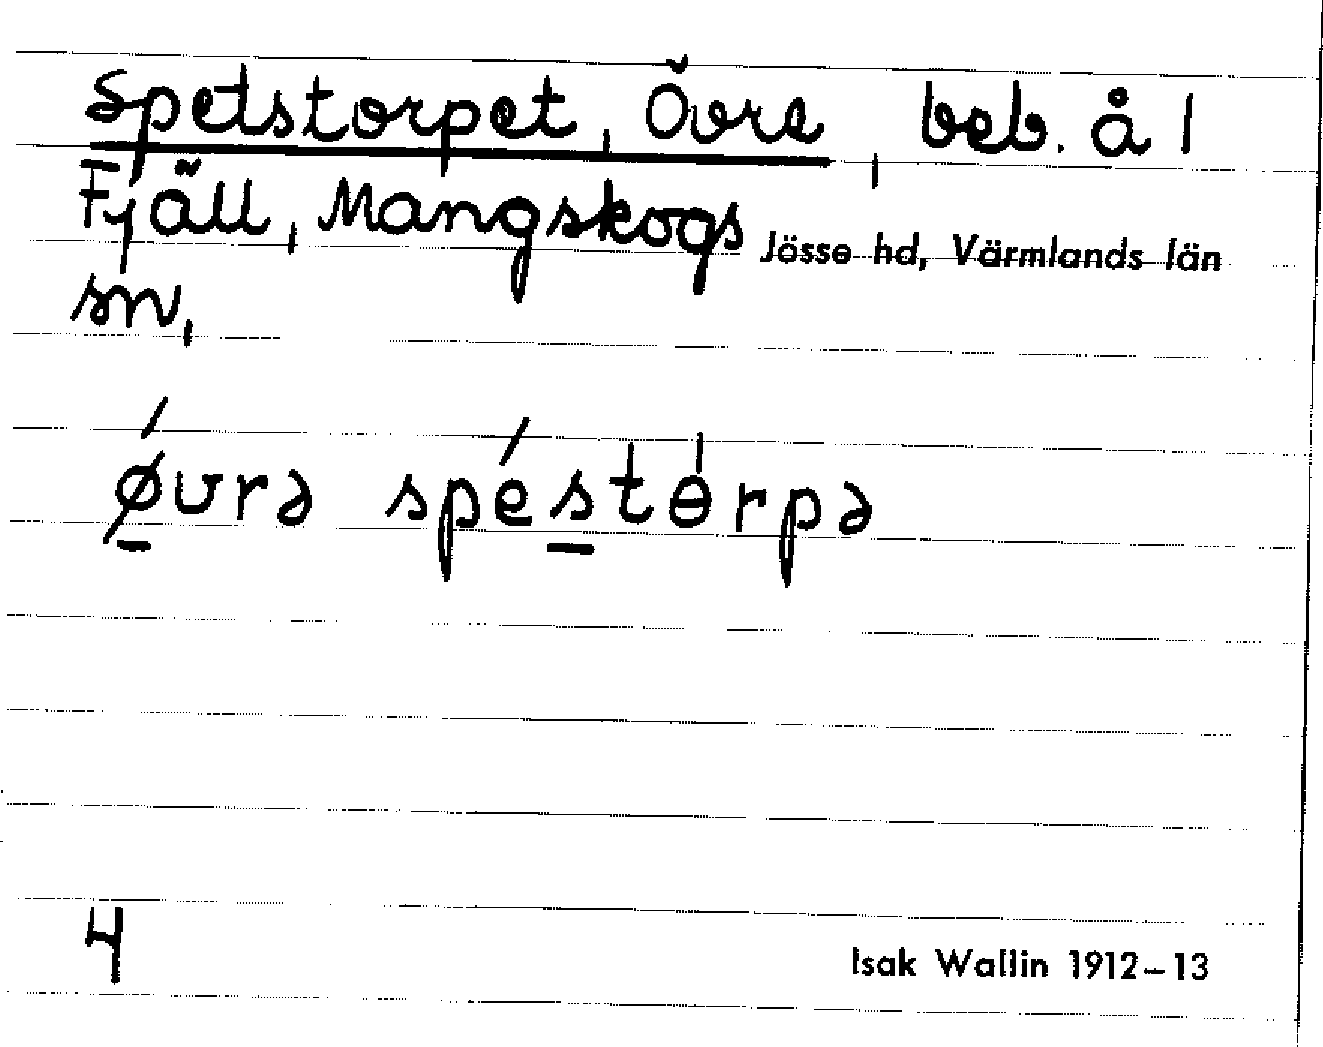 Spetstorpet, Övre, beb. å 1
Fjäll, Mangskogs Jösse hd, Värmlands län
sn,
ǿvrə spéstɵ́rpə
4
Isak Wallin 1912–13